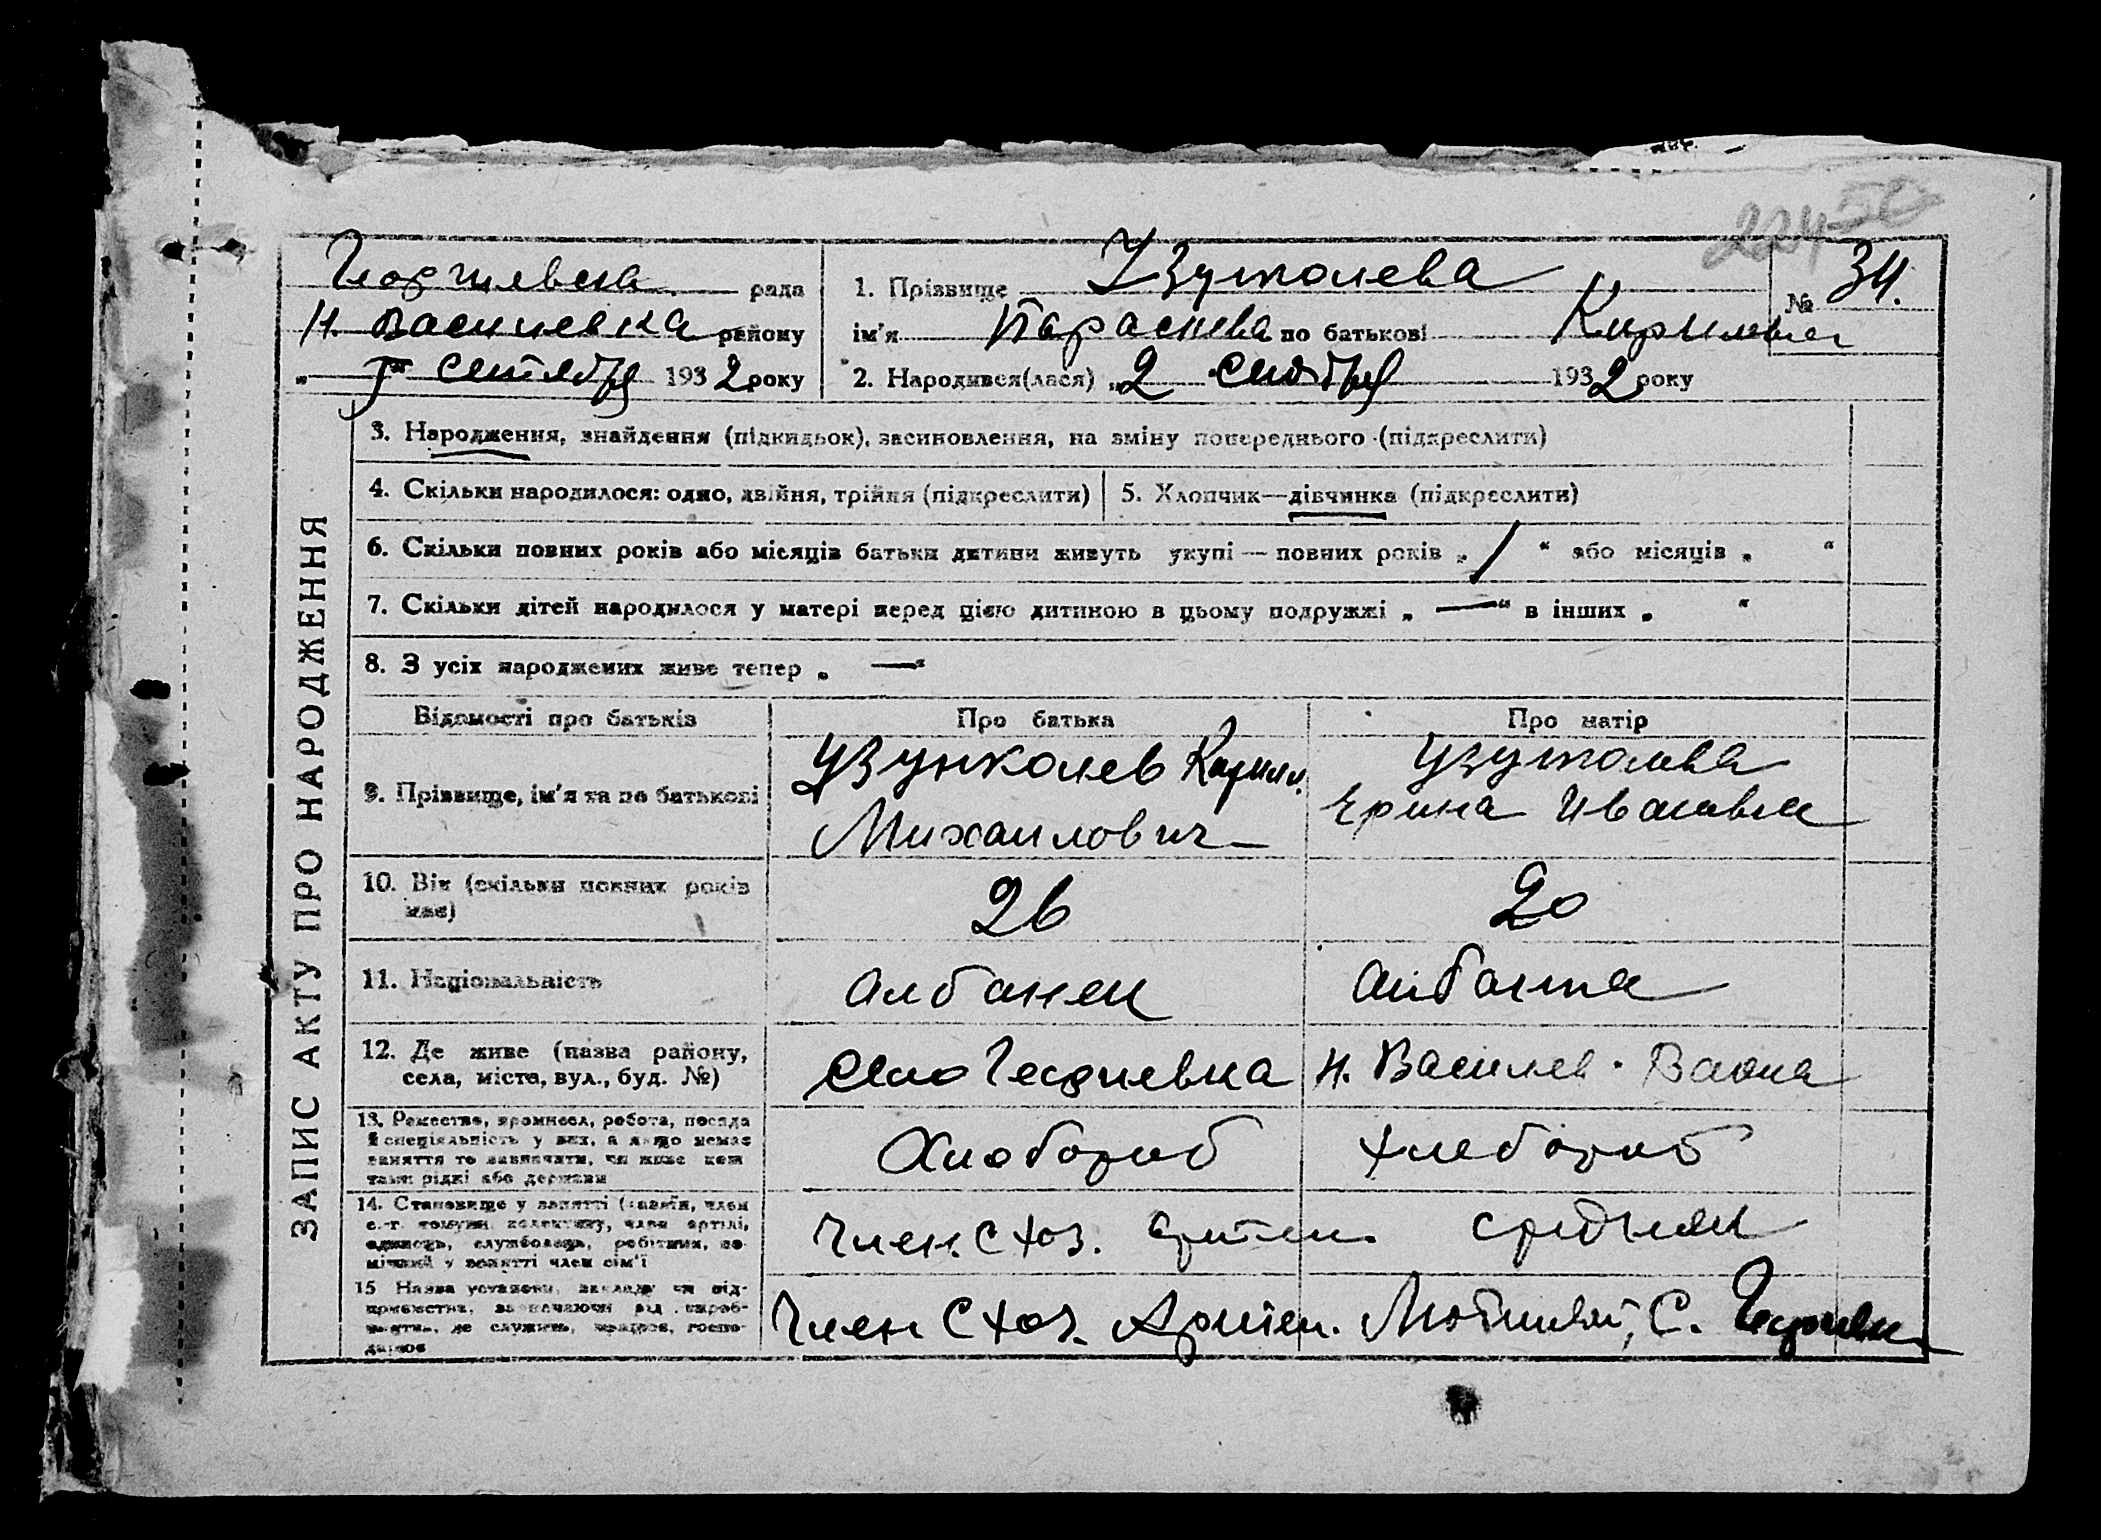 224 56
рада
района
№ 34.
Н. Василевка району
5го сентября 1932 року
1. Прізвище
ім'я Параскева по батькові
2. Народився(лася) „2 сентября 1932 року
ЗАПИС АКТУ ПРО НАРОДЖЕННЯ
3. Народження, знайдення (підкидьок), засиновлення, на зміну попереднього (підкреслити)
4. Скільки народилося: одно, двійня, трійня (підкреслити)
5. Хлопчик—дівчинка (підкреслити)
6. Скільки повних років або місяців батьки дитини живуть укупі — повних років „ 1 “ або місяців „ “
7. Скільки дітей народилося у матері перед цією дитиною в цьому подружжі „ — “ в інших „ “
8. З усіх народжених живе тепер „ — “
Відомості про батьків
Про батька
Про матір
9. Прізвище, ім'я та по батькові
Узунколев Кирил.
Михаилович
Ерина
10. Вік (скільки повних років
має)
26
20
11. Національність
албанец
албанка
12. Де живе (назва району,
села, міста, вул., буд. №)
село
Н. Василев.
13. Ремество, промисел, робота, посада
й спеціяльність у них, а якщо немає
заняття то зазначити, чи живе коштами рідні або держави
хлебороб
14. Становище у занятті (хазяїн, член
с.-г. комуни, колективу, член артілі,
одинець, службовець, робітник, помічний у занятті член сім'ї
Член. С хоз. Артел.
средняк
15. Назва установи, закладу чи підприємства, зазначаючи вид виробництва, де служить, працює, господарює
Член С хоз. Артел.
С.